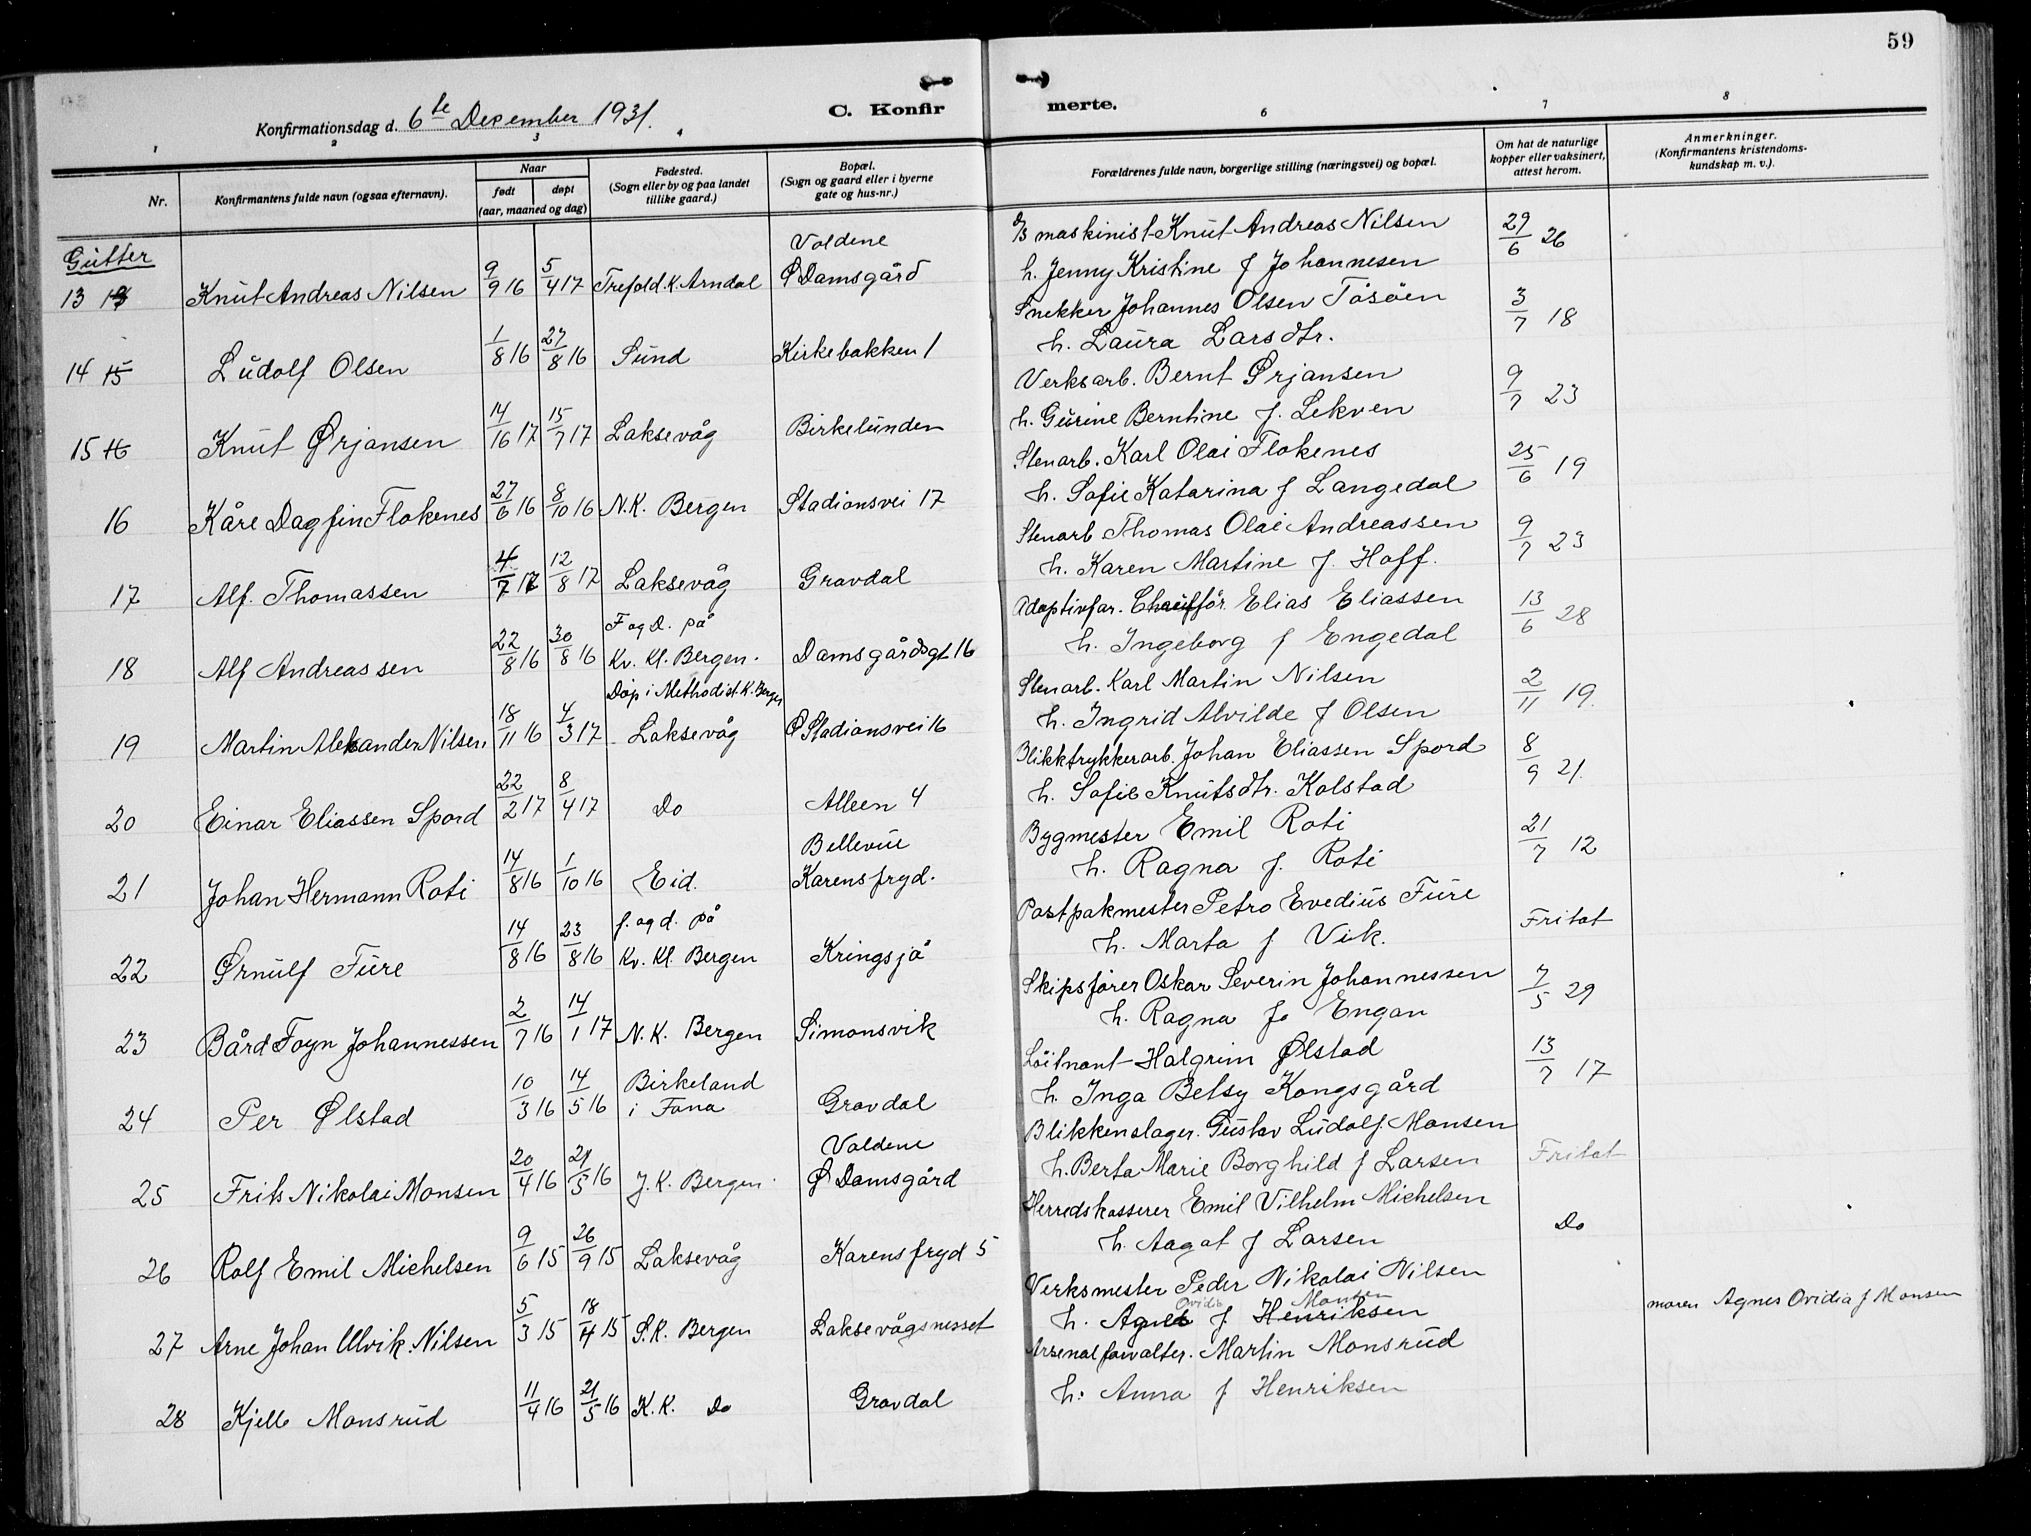 59
Konfirmationsdag d. 6te December 1931.
C. Konfir merte.
1 2 3 4 6 7 8
Nr.
Konfirmantens fulde navn (ogsaa efternavn).
Naar
født døpt
(aar, maaned og dag)
Fødested.
(Sogn eller by og paa landet
tillike gaard.)
Bopæl.
(Sogn og gaard eller i byerne
gate og hus-nr.)
Forældrenes fulde navn, borgerlige stilling (næringsvei) og bopæl.
Om hat de naturlige
kopper eller vaksinert,
attest herom.
Anmerkninger.
(Konfirmantens kristendoms-
kundskap m. v.).
Gutter
13 Knut Andreas Nilsen 9/9 16 5/4 17 Trefold.k. Arndal Voldene Ø Damsgård
D/S maskinist Knut Andreas Nilsen 29/6 26
h. Jenny Kristine f Johannesen
14 15 Ludolf Olsen 1/8 16 27/8 16 Sund Kirkebakken 1
Snekker Johannes Olsen Tösöen 3/7 18
h. Laura Larsdtr.
15 16 Knut Ørjansen 14/16 17 15/7 17 Laksevåg Birkelunden
Verksarb. Bernt Ørjansen 9/7 23
h. Gurine Berntine f. Lekven
16 Kåre Dagfin Flokenes 27/6 16 8/10 16 N.K. Bergen Stadionsvei 17
Stenarb. Karl Olai Flokenes 25/6 19
h. Sofie Katarina f Langedal
17 Alf. Thomassen 4/7 17 12/8 17 Laksevåg Gravdal
Stenarb Thomas Olai Andreassen 9/7 23
h. Karen Martine f. Hoff.
18 Alf Andreassen 22/8 16 30/8 16 F og D. på Kv. Kl. Bergen. Damsgårdsgt 16
Adoptivfar. Chauffør Elias Eliassen 13/6 28
h. Ingeborg f Engedal
19 Martin Aleksander Nilsen. 18/11 16 4/3 17 Døp i Methodist K. Bergen Laksevåg Ø Stadionsvei 16
Stenarb. Karl Martin Nilsen 2/11 19.
h. Ingrid Alvilde f Olsen
20 Einar Eliassen Spord 22/2 17 8/4 17 Do Alleen 4
Blikktrykkerarb. Johan Eliassen Spord 8/9 21.
h. Sofie Knutsdtr. Kolstad
21 Johan Hermann Roti 14/8 16 1/10 16 Eid. Bellevue Karensfryd.
Bygmester Emil Roti 21/7 12
h. Ragna f. Roti
22 Ørnulf Fure 14/8 16 23/8 16 f. og d. på Kv. Kl Bergen Kringsjå
Postpakmester Petro Evedius Fure Fritat
h. Marta f Vik.
23 Bård Foyn Johannessen 2/7 16 14/1 17 N. K. Bergen Simonsvik
Skipsfører Oskar Severin Johannessen 7/5 29
h. Ragna fo Engan
24 Per Ølstad 10/3 16 14/5 16 Birkeland i Fana Gravdal
Löitnant Halgrim Ølstad 13/7 17
h. Inga Betsy Kongsgård
25 Frits Nikolai Monsen 20/4 16 21/5 16 J. K. Bergen. Voldene Ø Damsgård
Blikkenslager. Gustav Ludolf Monsen Fritat
h. Berta Marie Borghild f Larsen
26 Rolf Emil Michelsen 9/6 15 26/9 15 Laksevåg Karensfryd 5
Herredskasserer Emil Vilhelm Michelsen Do
h. Aagot f Larsen
27 Arne Johan Ulvik. Nilsen 5/3 15 18/4 15 S.K. Bergen Laksevågsnesset
Verksmester Peder Nikolai Nilsen
h. Agnes Ovidia f Henriksen Monsen
moren Agnes Ovidia f Monsen
28 Kjell Monsrud 11/4 16 21/5 16 K.K. Do Gravdal
Arsenalforvalter. Martin Monsrud
h. Anna f Henriksen